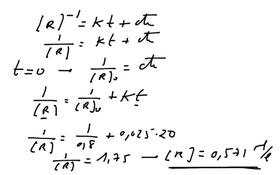 [R]⁻¹ = kt + cte
1/[R] = kt + cte
t=0 → 1/[R]₀ = cte
1/[R] = 1/[R]₀ + kt
1/[R] = 1/0,8 + 0,025·20
1/[R] = 1,75 → [R] = 0,571 M/l